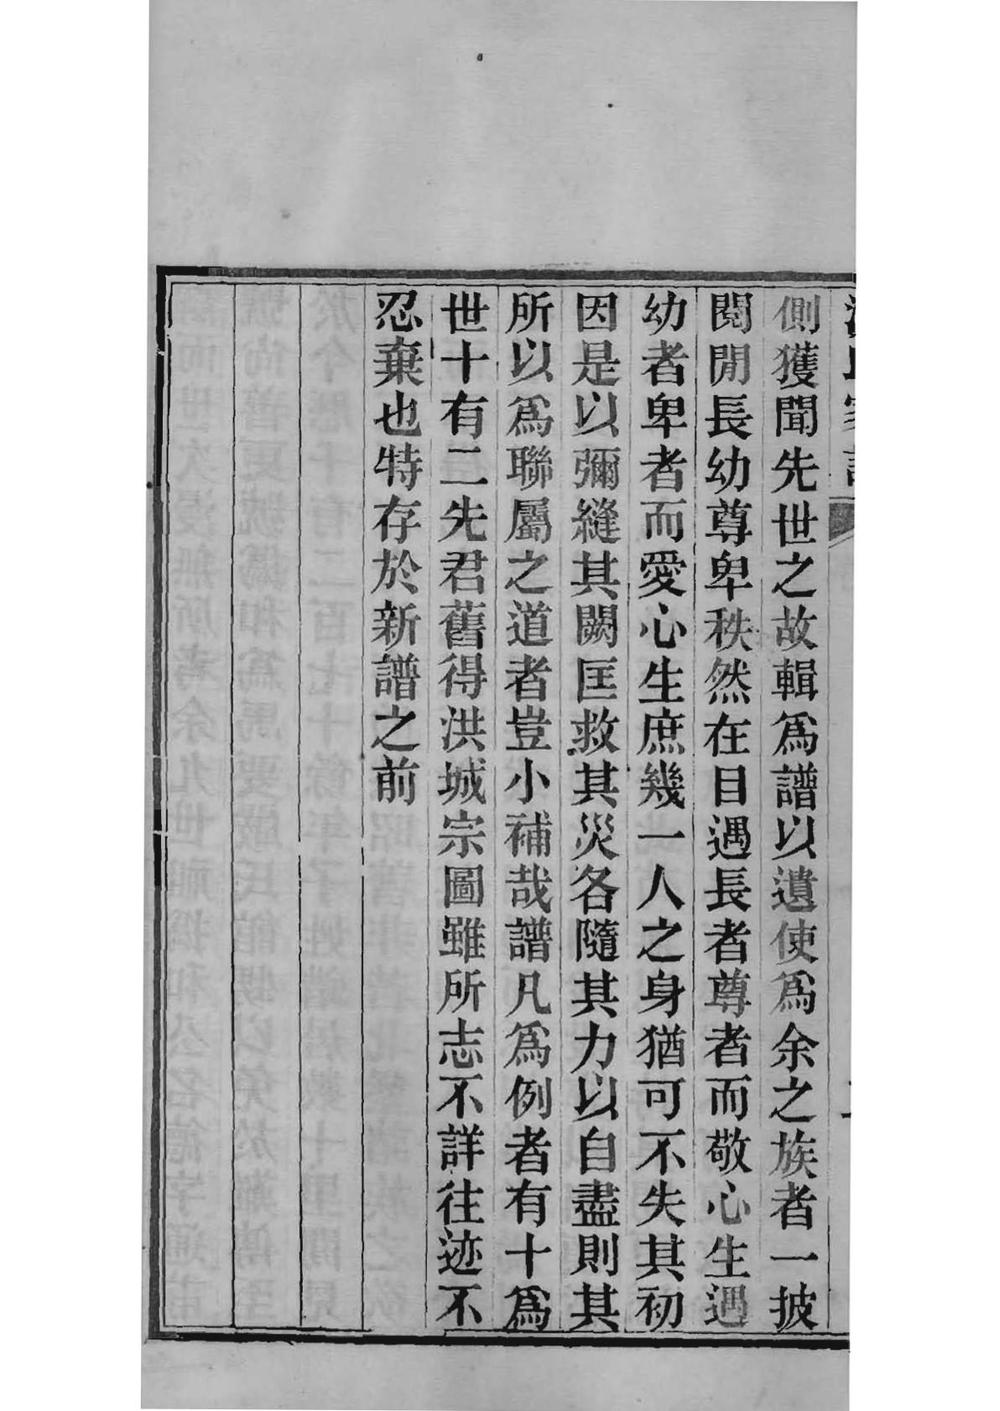 側獲聞先世之故輯爲譜以遺使爲余之族者一披
閱閒長幼尊卑秩然在目遇長者尊者而敬心生遇
幼者卑者而愛心生庶幾一人之身猶可不失其初
因是以彌縫其闕匡救其災各隨其力以自盡則其
所以爲聯屬之道者豈小補哉譜凡爲例者有十爲
世十有二先君舊得洪城宗圖雖所志不詳往迹不
忍棄也特存於新譜之前